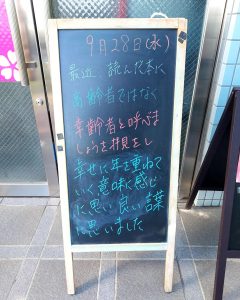 9月28日(水)
最近、読んだ本に
高齢者ではなく
幸齢者と呼べま
しょうを拝見し
幸せに年を重ねて
いく意味に感じ
に思い良い言葉
に思いました